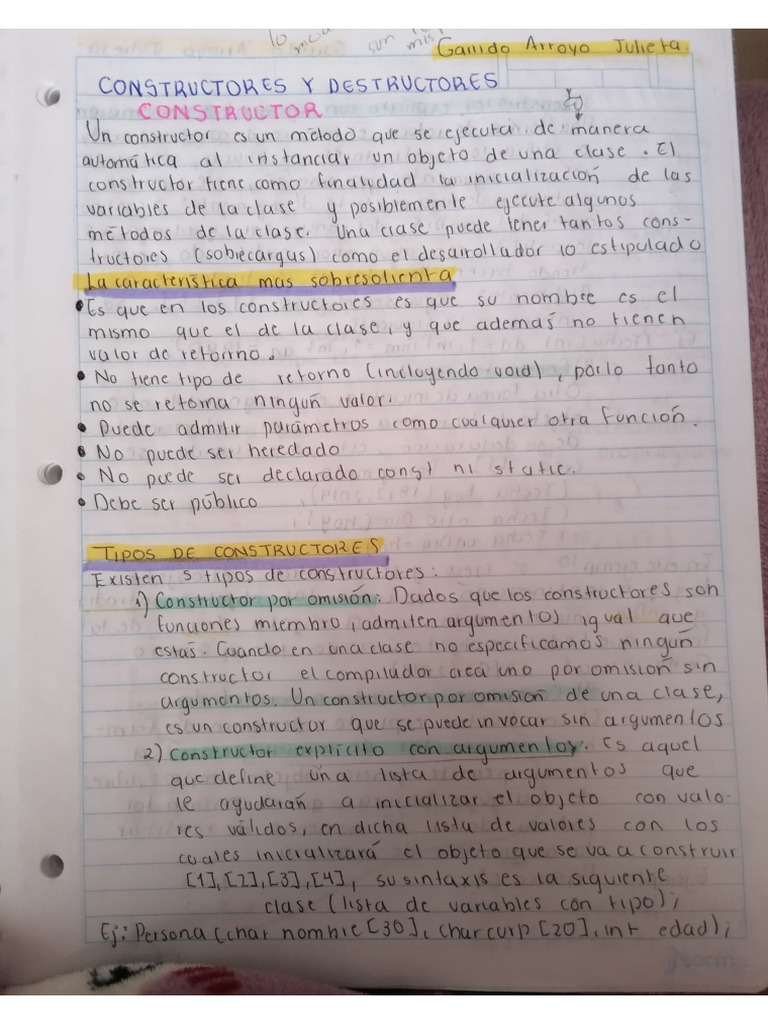 lo
sun mis
Garrido Arroyo Julieta.
CONSTRUCTORES Y DESTRUCTORES
CONSTRUCTOR
Un constructor es un método que se ejecuta de manera
automática al instanciar un objeto de una clase. El
constructor tiene como finalidad la inicialización de las
variables de la clase y posiblemente ejecute algunos
métodos de la clase. Una clase puede tener tantos cons-
tructores (sobrecargas) como el desarrollador lo estipulado
La característica mas sobresolienta
• Es que en los constructores es que su nombre es el
mismo que el de la clase, y que además no tienen
valor de retorno.
• No tiene tipo de retorno (incluyendo void), por lo tanto
no se retorna ningún valor.
• Puede admitir parámetros como cualquier otra función.
• No puede ser heredado
• No puede ser declarado const ni static.
• Debe ser público
TIPOS DE CONSTRUCTORES
Existen 5 tipos de constructores:
1) Constructor por omisión: Dados que los constructores son
funciones miembro, admiten argumentos igual que
estas. Cuando en una clase no especificamos ningún
constructor el compilador crea uno por omisión sin
argumentos. Un constructor por omisión de una clase,
es un constructor que se puede invocar sin argumentos
2) Constructor explícito con argumentos. Es aquel
que define una lista de argumentos que
le ayudarán a inicializar el objeto con valo-
res válidos, en dicha lista de valores con los
cuales inicializará el objeto que se va a construir
[1],[2],[3],[4], su sintaxis es la siguiente
clase (lista de variables con tipo);
Ej: Persona (char nombre [30], char curp [20], int edad);
norma